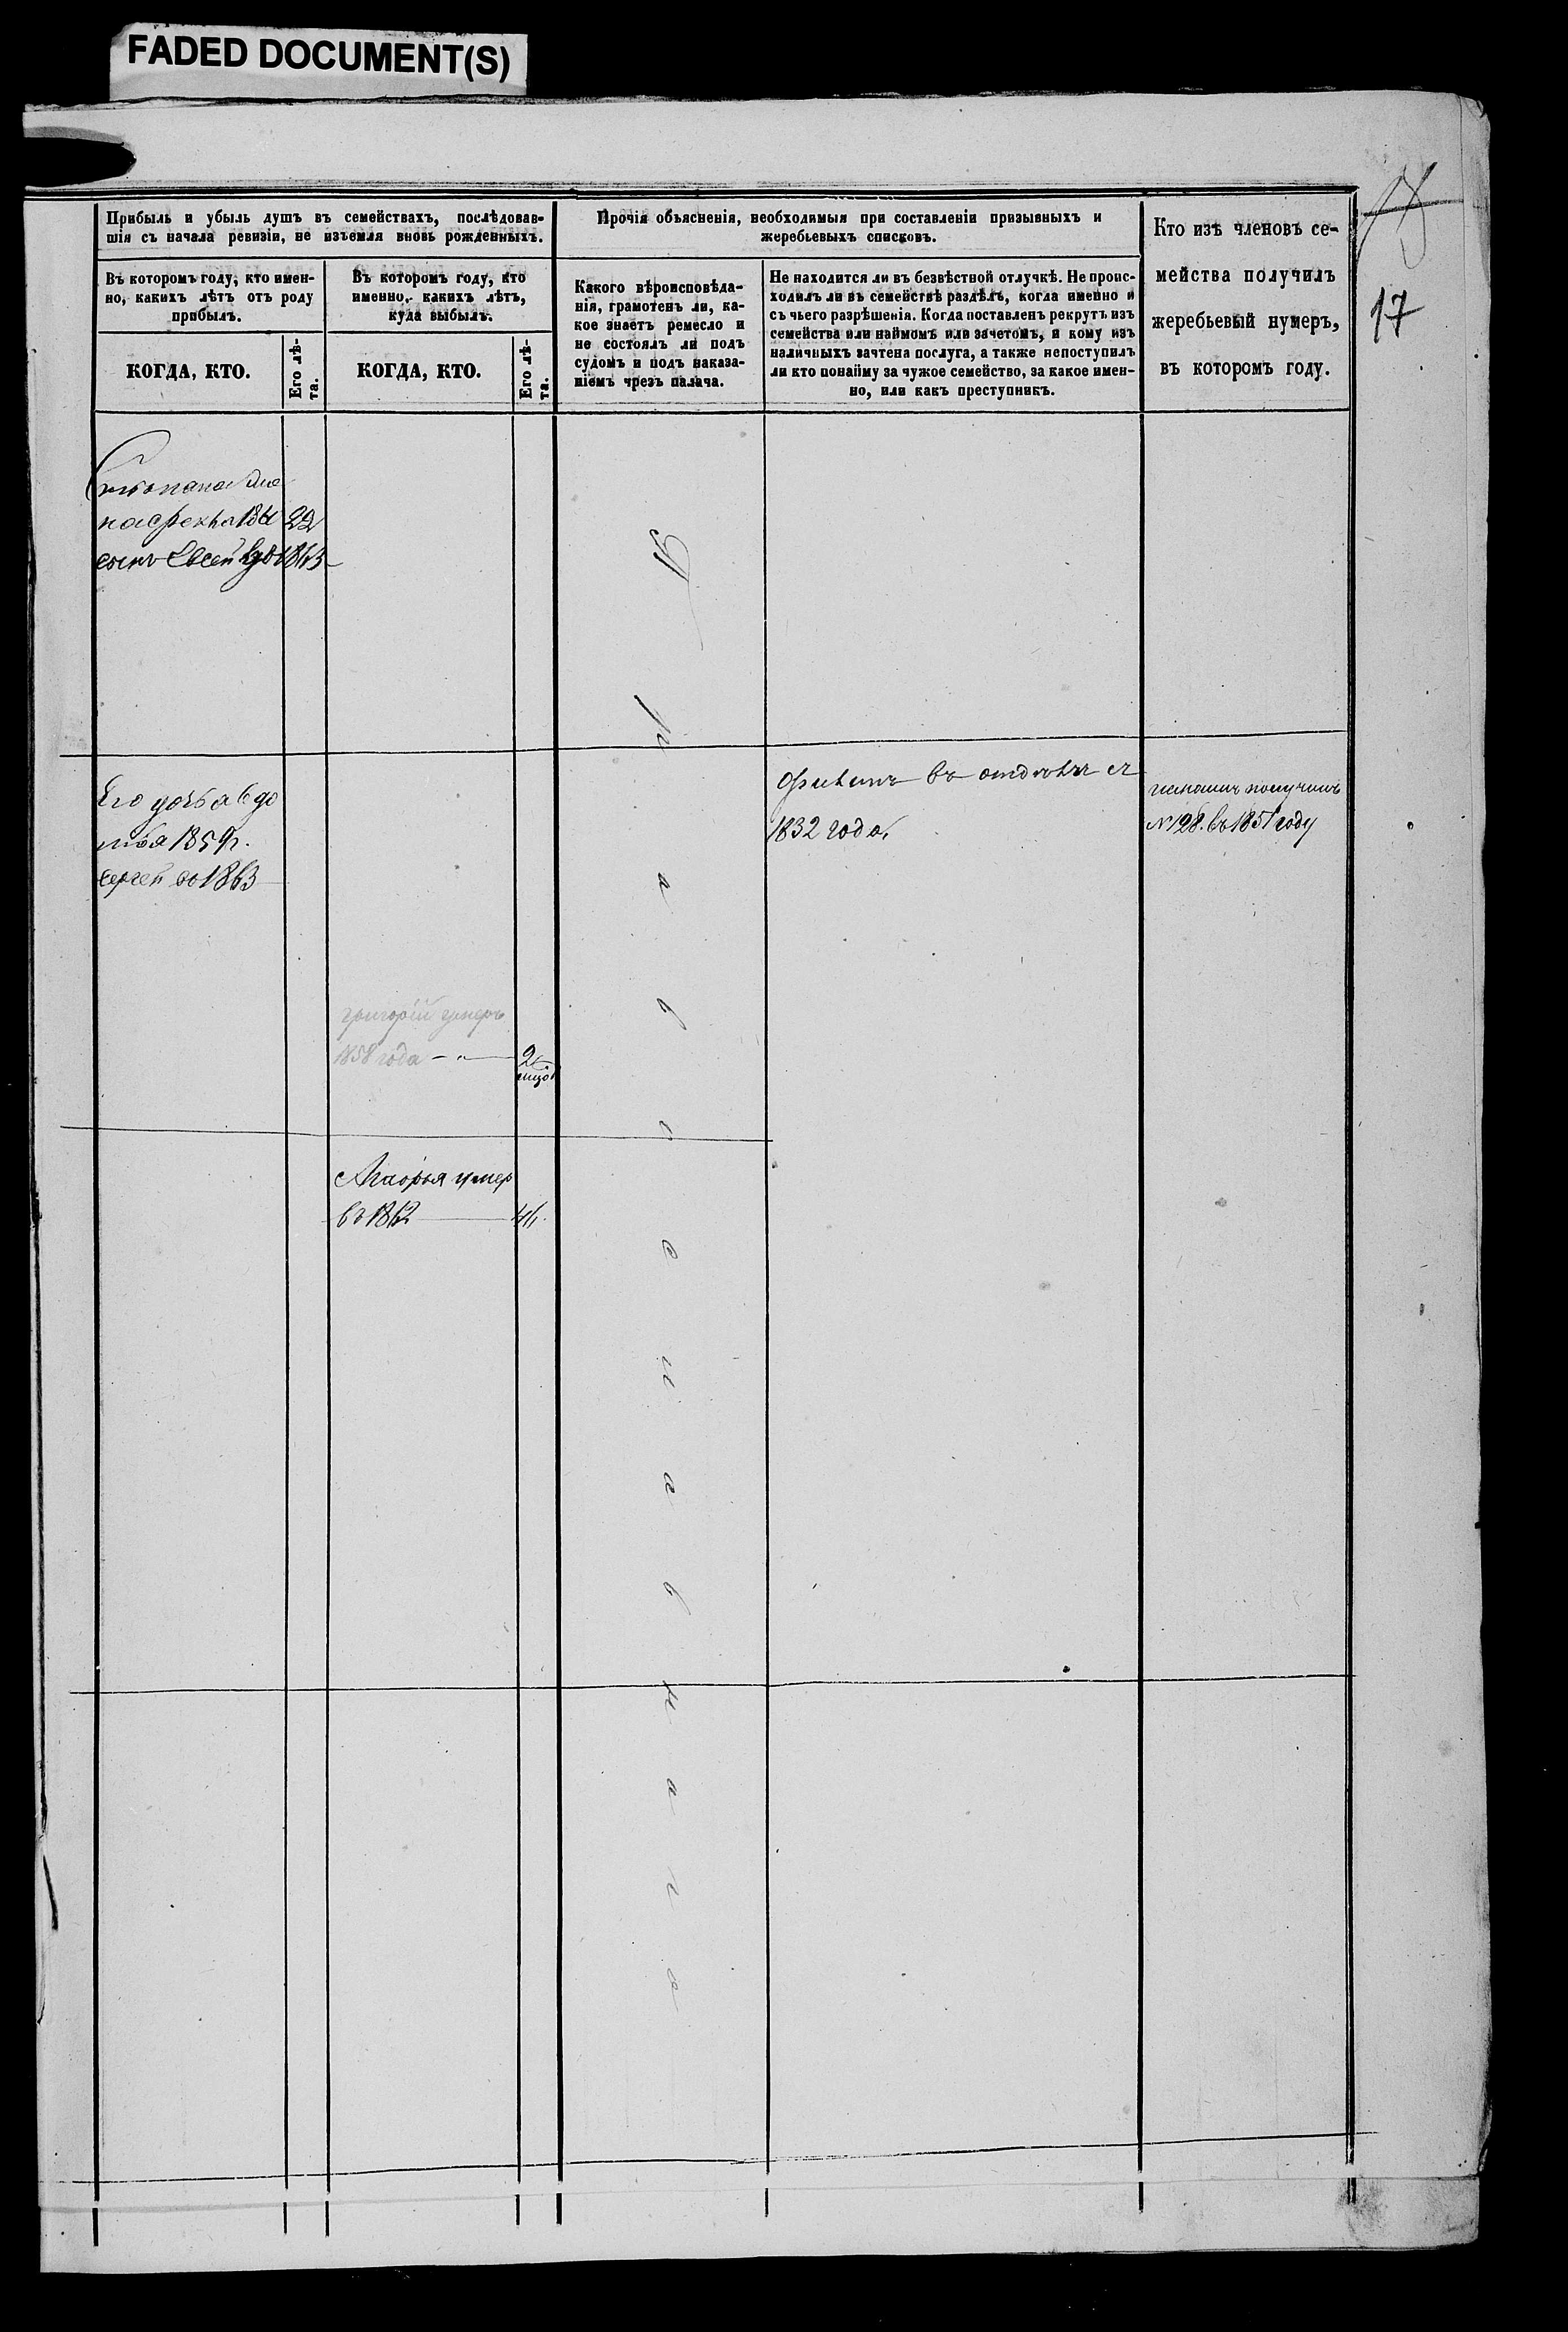 FADED DOCUMENT(S)
17
Прибыль и убыль душъ въ семействахъ, послѣдовав-
шія съ начала ревизіи, не изъемля вновь рожденныхъ.
Въ которомъ году, кто имен-
но, какихъ лѣтъ отъ роду
прибылъ.
КОГДА, КТО.
Его лѣ-
та.
Въ которомъ году, кто
именно, какихъ лѣтъ,
куда выбылъ.
КОГДА, КТО.
Его лѣ-
та.
Прочія объясненія, необходимыя при составленіи призывныхъ и
жеребьевыхъ списковъ.
Какого вѣроисповѣда-
нія, грамотенъ ли, ка-
кое знаетъ ремесло и
не состоялъ ли подъ
судомъ и подъ наказа-
ніемъ чрезъ палача.
Не находится ли въ безвѣстной отлучкѣ. Не проис-
ходилъ ли въ семействѣ раздѣлъ, когда именно и
съ чьего разрѣшенія. Когда поставленъ рекрутъ изъ
семейства или наймомъ или зачетомъ, и кому изъ
наличныхъ зачтена послуга, а также непоступилъ
ли кто понайму за чужое семейство, за какое имен-
но, или какъ преступникъ.
Кто изъ членовъ се-
мейства получилъ
жеребьевый нумеръ,
въ которомъ году.
22
сынъ Евсей 1863
Его дочь авдо
тья 1859г.
Сергей во 1863
григорій умеръ
1858 года — 2
умер
въ 1862 —
Православнаго
въ отдѣлѣ съ
1832 года
получилъ
№ 128. въ 1851 году